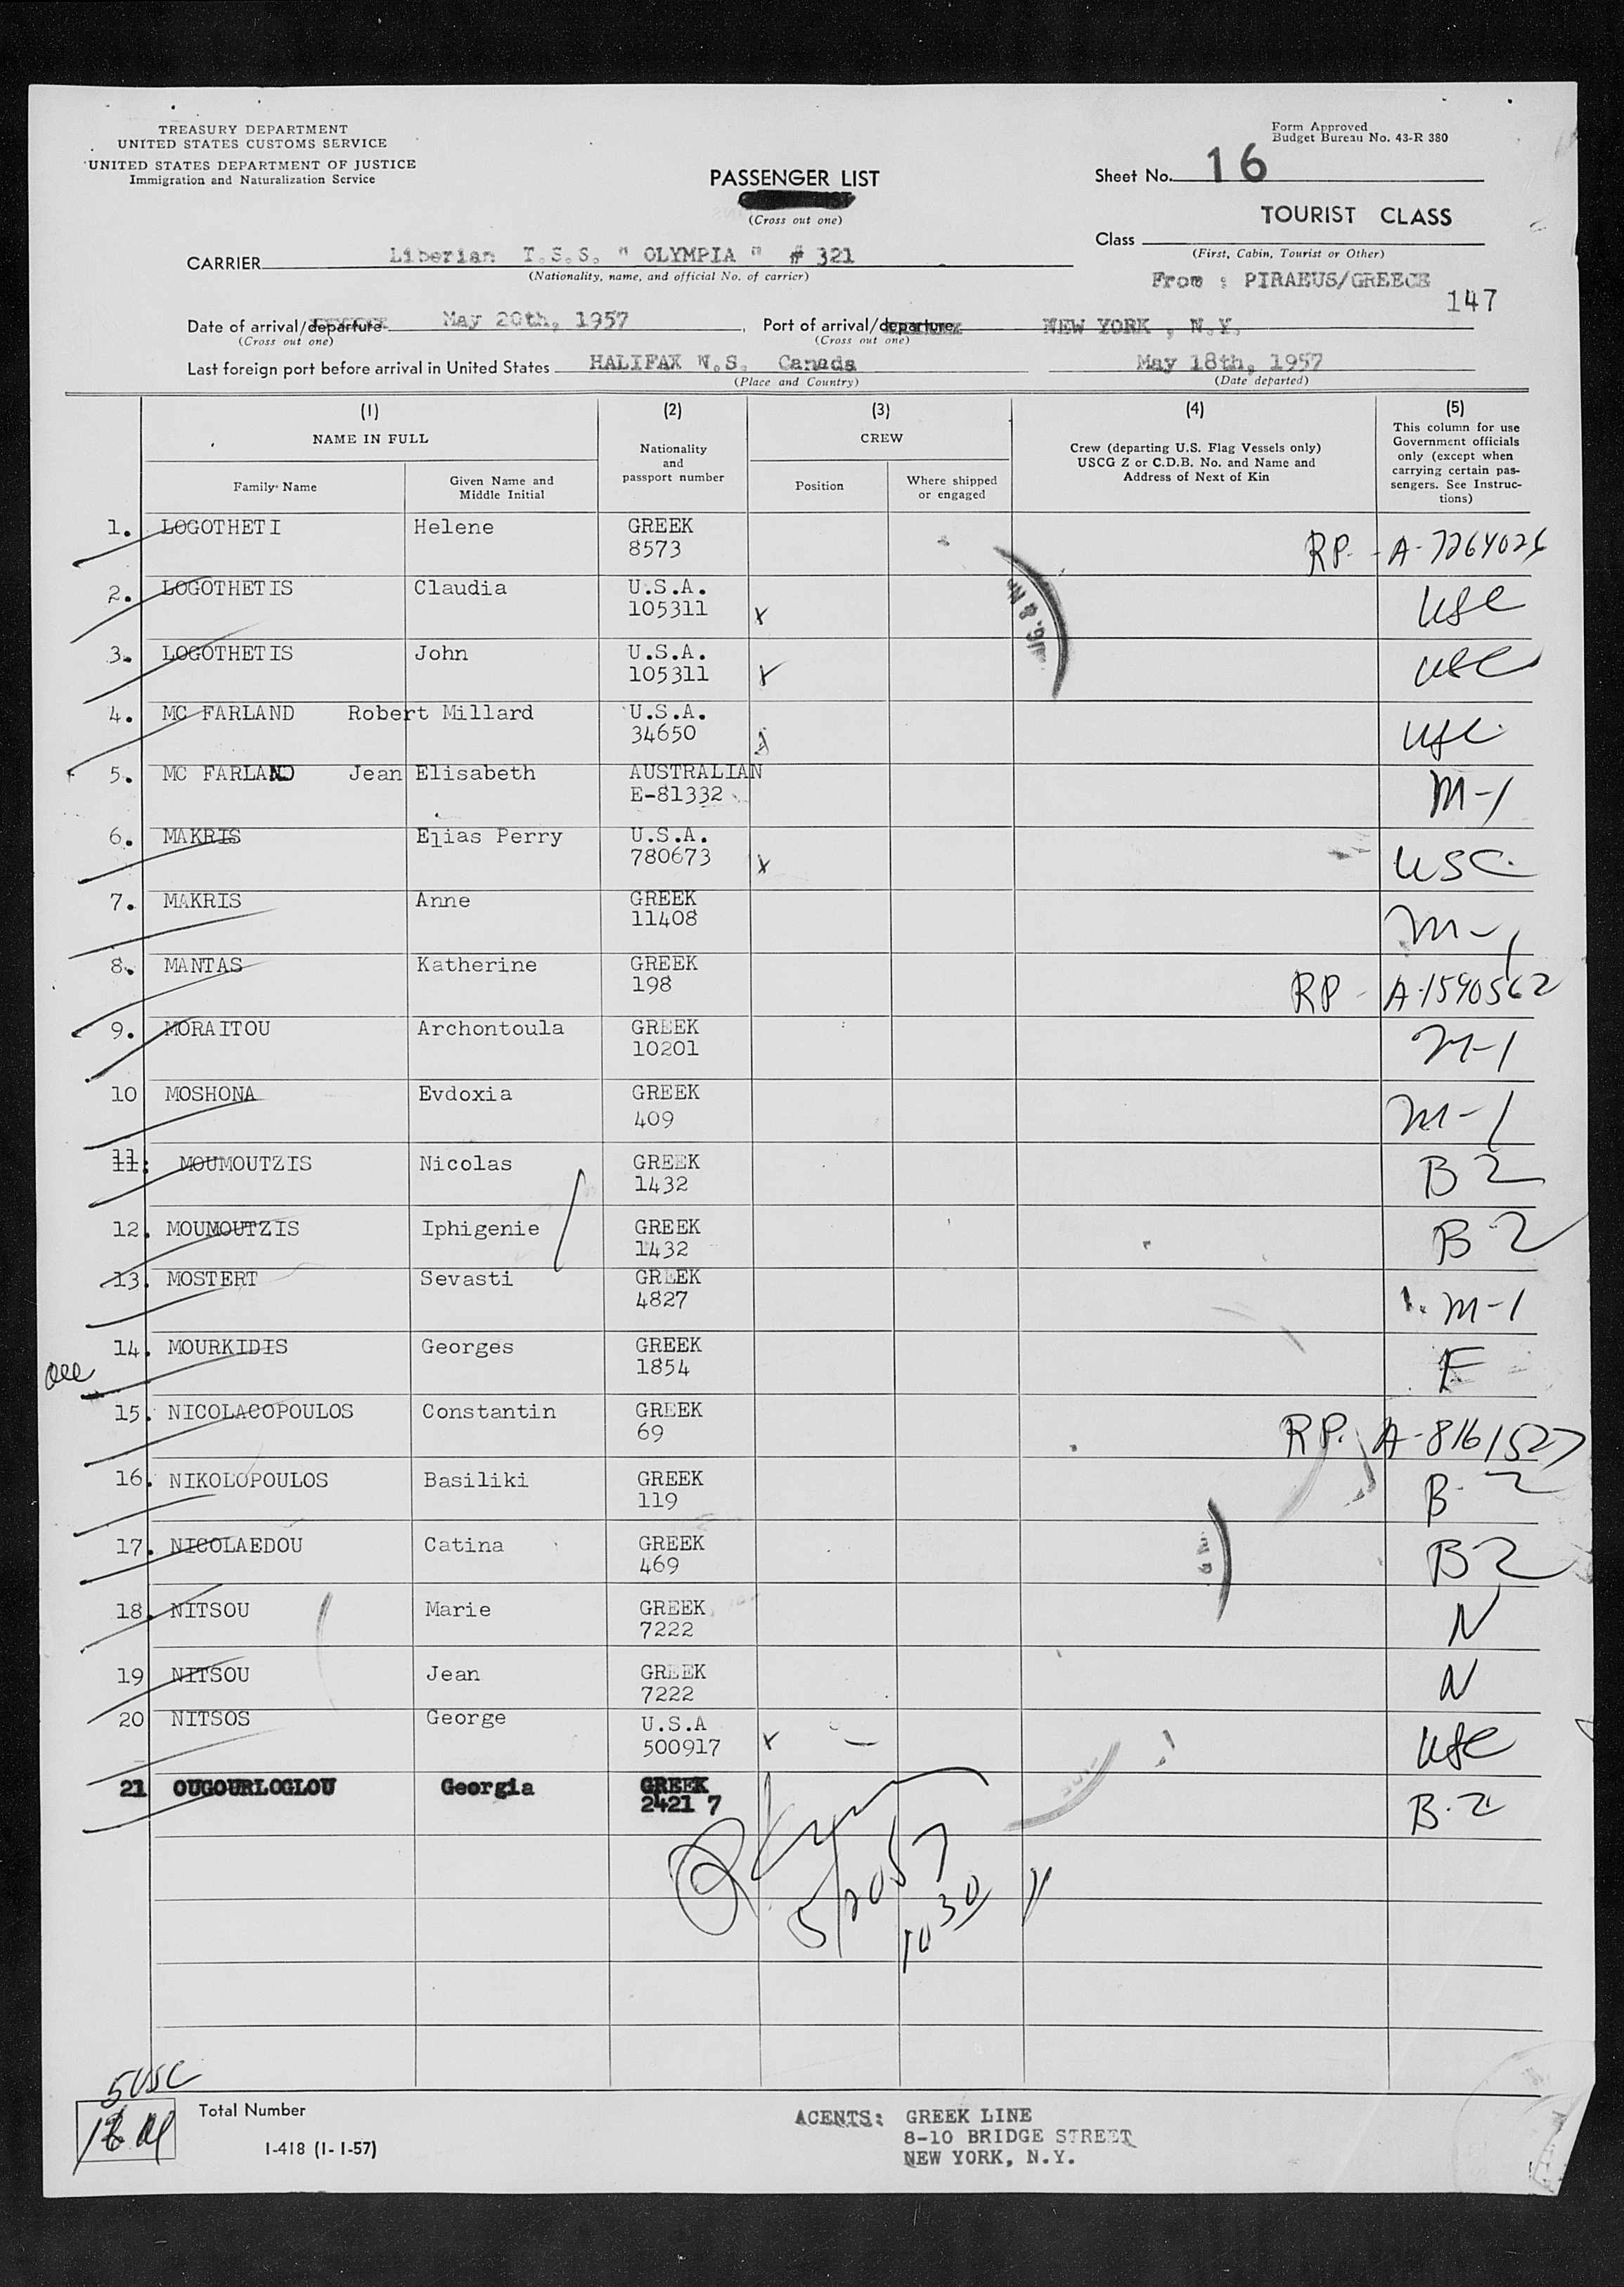 TREASURY DEPARTMENT
UNITED STATES CUSTOMS SERVICE
UNITED STATES DEPARTMENT OF JUSTICE
Immigration and Naturalization Service
Form Approved
Budget Bureau No. 43-R 380
PASSENGER LIST
(Cross out one)
Sheet No. 16
TOURIST CLASS
Class
(First, Cabin, Tourist or Other)
CARRIER Liberian T.S.S. " OLYMPIA " # 321
(Nationality, name, and official No. of carrier)
From : PIRAEUS/GREECE
147
Date of arrival/departure May 20th, 1957, Port of arrival/departure NEW YORK , N.Y.
(Cross out one) (Cross out one)
Last foreign port before arrival in United States HALIFAX N.S. Canada May 18th, 1957
(Place and Country) (Date departed)
(1) (2) (3) (4) (5)
NAME IN FULL
Family Name
Given Name and Middle Initial
Nationality and passport number
CREW
Position
Where shipped or engaged
Crew (departing U.S. Flag Vessels only)
USCG Z or C.D.B. No. and Name and
Address of Next of Kin
This column for use
Government officials
only (except when
carrying certain pas-
sengers. See Instruc-
tions)
1. LOGOTHETI Helene GREEK 8573 RP. - A-7264026
2. LOGOTHETIS Claudia U.S.A. 105311 x USC
3. LOGOTHETIS John U.S.A. 105311 x USC
4. MC FARLAND Robert Millard U.S.A. 34650 USC
5. MC FARLAND Jean Elisabeth AUSTRALIAN E-81332 M-1
6. MAKRIS Elias Perry U.S.A. 780673 x USC
7. MAKRIS Anne GREEK 11408 M-1
8. MANTAS Katherine GREEK 198 RP - A-1590562
9. MORAITOU Archontoula GREEK 10201 M-1
10 MOSHONA Evdoxia GREEK 409 M-1
11: MOUMOUTZIS Nicolas GREEK 1432 B 2
12. MOUMOUTZIS Iphigenie GREEK 1432 B 2
13. MOSTERT Sevasti GREEK 4827 M-1
14. MOURKIDIS Georges GREEK 1854 F
15. NICOLACOPOULOS Constantin GREEK 69 RP. A-8161527
16. NIKOLOPOULOS Basiliki GREEK 119 B-2
17. NICOLAEDOU Catina GREEK 469 B 2
18. NITSOU Marie GREEK 7222 N
19 NITSOU Jean GREEK 7222 N
20 NITSOS George U.S.A 500917 x USC
21 OUGOURLOGLOU Georgia GREEK 2421 7 B-2
5/20/57
10 30
5 USC
Total Number
I-418 (1-1-57)
AGENTS: GREEK LINE
8-10 BRIDGE STREET
NEW YORK, N.Y.